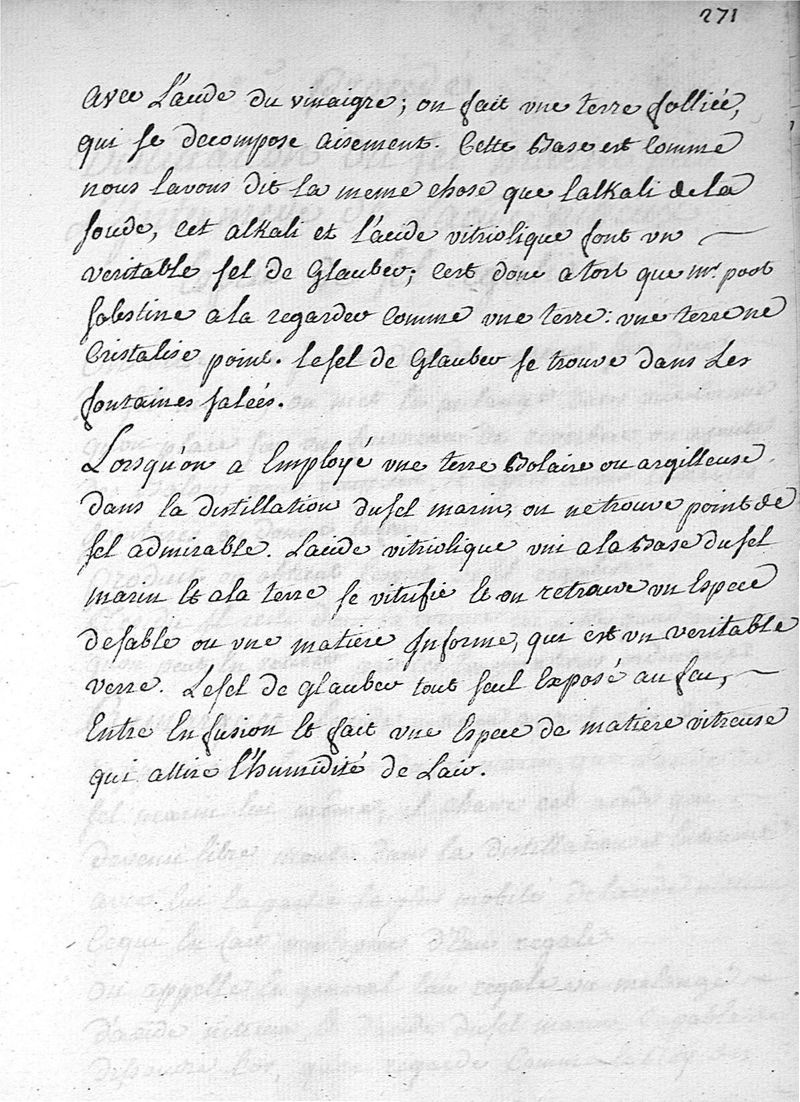 271
avec L'acide du vinaigre; on fait vne terre folliée,
qui se decompose aisement. Cette Base est Comme
nous lavons dit la meme chose que lalkali de la
soude, Cet alkali et l'acide vitriolique font vn
veritable sel de Glauber; Cest donc atort que mr. poot
sobstine a la regarder Comme vne terre: vne terre ne
Cristalise point. Le sel de Glauber se trouve dans Les
fontaines salées.
Lorsqu'on a Employé vne terre Bolaire ou argilleuse
dans la distillation du sel marin, on ne trouve point de
sel admirable. L'acide vitriolique vni a la Base du sel
marin Et ala terre se vitrifie Et on retrouve vn Espece
de sable ou vne matiere Informe, qui est vn veritable
verre. Le sel de Glauber tout seul Exposé au feu,
Entre En fusion Et fait vne Espece de matiere vitreuse
qui attire l'humidité de Lair.